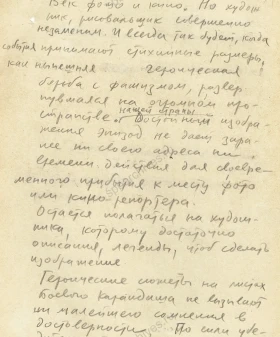 Век фото и кино. Но худож
ник, рисовальщик совершенно
незаменим. И всегда так будет, когда
события принимают стихийные размеры,
как нынешняя героическая
борьба с фашизмом, развер
нувшаяся на огромном про-
нашей страны
странстве. Достойный изобра
жения эпизод не дает зара-
нее ни своего адреса ни
времени действия для своевре-
менного прибытия к месту фото
или кино-репортера.
Остается полагаться на худож-
ника, которому достаточно
описания, легенды, чтоб сделать
изображение
Героические сюжеты на листах
Боевого Карандаша не вызывают
ни малейшего сомнения в
достоверности. По силе убе-